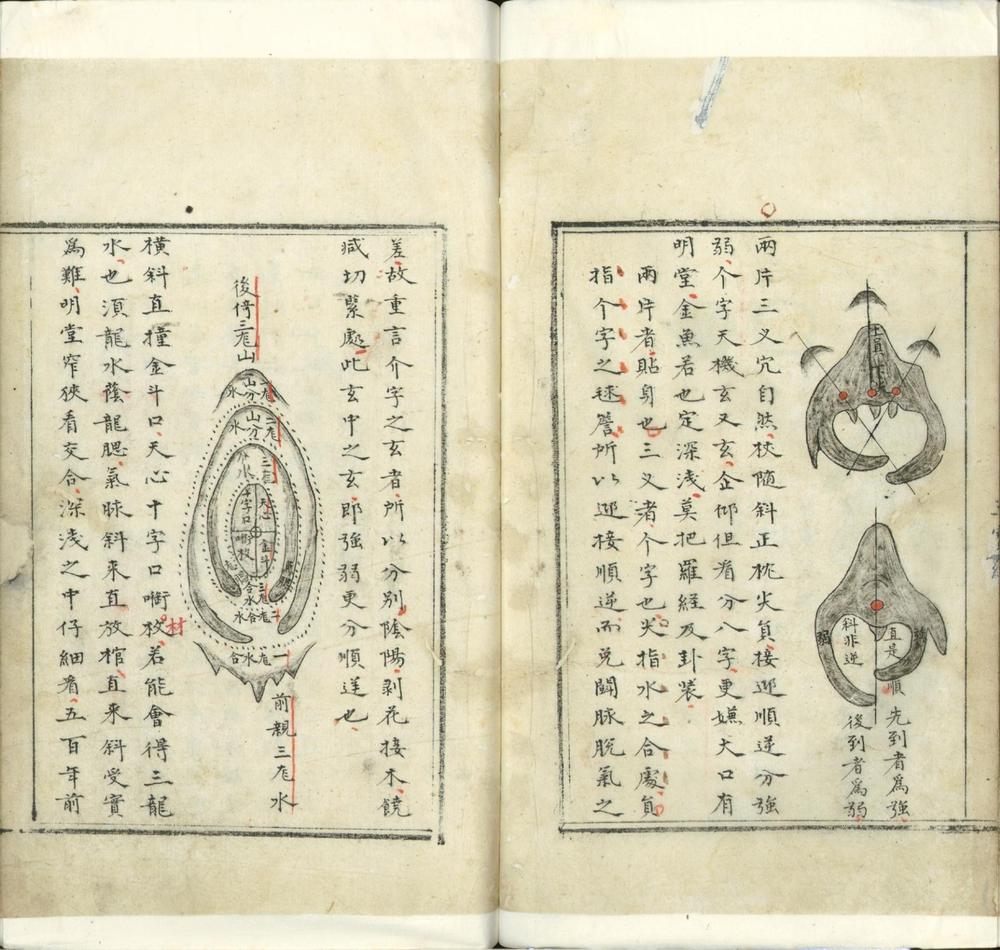 直是順
先到者為強
斜非逆
後到者為弱
兩片三义穴自然挾隨斜正枕尖負接迎順逆分強
弱个字天機玄又玄企仰但看分八字更嫌大口有
明堂金魚者也定深浅莫把羅經及卦裝
兩片者貼身也三义者个字也尖指水之合處負
指个字之毬簷所以迎接順逆而免鬪脉脱氣之
差故重言介字之玄者所以分別陰陽剥花接木饒
减切緊處此玄中之玄即強弱更分順逆也
後倚三尾山
山分水
山分水
三尾
十字口
天心
金斗
啣枚
合水
合水
一尾水合
前親三尾水
横斜直撞金斗口天心十字口啣枚若能會得三龍
材
水也湏龍水蔭龍腮氣脉斜来直放棺直来斜受實
為難明堂窄狹看交合深浅之中仔細看五百年前